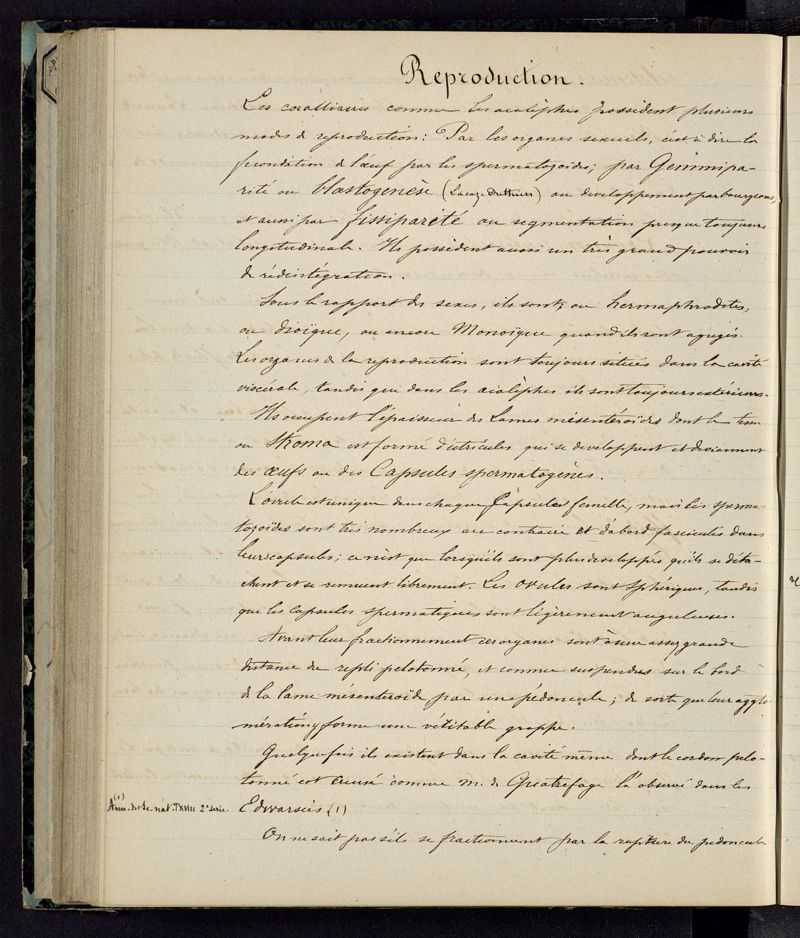 Reproduction.
Les coralliaires comme les acalèphes possèdent plusieurs
modes de reproduction: Par les organes sexuels, c'est à dire la
fecondition de l'œuf par les spermatozoïdes; par Gemmipa-
rité ou blastogenèse (Lacaze Duthiers) ou developpement par bourgeons,
et aussi par fissipareté ou segmentation presque toujours
longitudinale. Ils possèdent aussi un très grand pouvoir
de rédintégration.
Sous le rapport des sexes, ils sont, ou hermaphrodites,
ou dioïque, ou encore Monoïque quand ils sont agrégés.
Les organes de la reproduction sont toujours situés dans la cavité
viscérale, tandis que dans les acalèphes ils sont toujours extérieurs.
Ils occupent l'épaisseur des Lames mésentéroïdes dont le tissu
ou Stroma est formé d'utricules qui se developpent et deviennent
des œufs ou des Capsules spermatogènes.
L'ovule est unique dans chaque Capsule femelle, mais les sperma-
tozoïdes sont très nombreux au contraire et d'abord fasciculés dans
leurs capsules; ce n'est que lorsqu'ils sont plus developpés qu'ils se déta-
chent et se remuent librement. Les ovules sont sphériques, tandis
que les capsules spermatiques sont légèrement anguleuses.
Avant leur fractionnement ces organes sont à une assez grande
distance du repli pelotonné, et comme suspendus sur le bord
de la lame mésenteroïde par un pédoncule; de sorte que leur agglo-
mération y forme une véritable grappe.
Quelquefois ils existent dans la cavité même dont le cordon pelo-
tonné est creusé comme m. de Quatrefage l'a observé dans les
Edwarsies (1)
(1)
Ann. de Sc. nat. T XVIII 2e serie.
On ne sait pas s'ils se fractionnent par la rupture du pedoncule